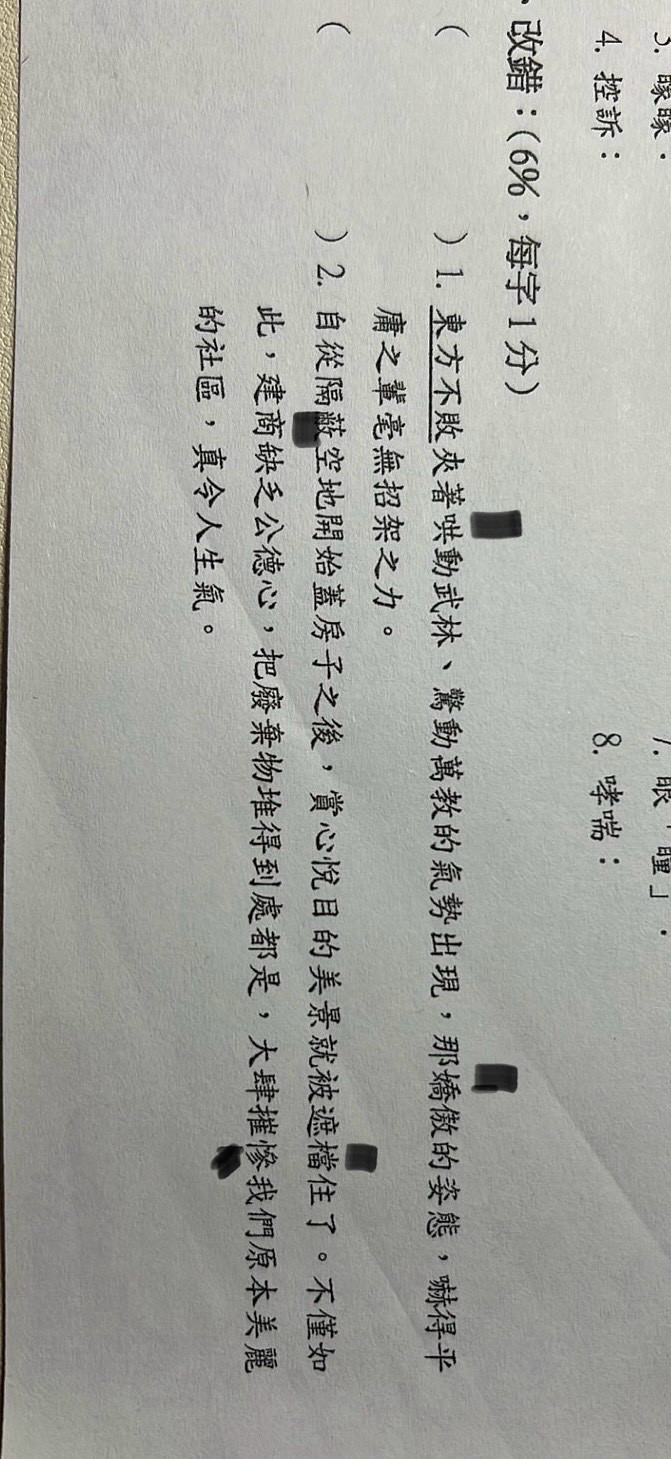 4. 控訴： 8. 哮喘：
、改錯：(6%，每字1分)
(　　) 1. 東方不敗夾著哄動武林、驚動萬教的氣勢出現，那嬌傲的姿態，嚇得平
庸之輩毫無招架之力。
(　　) 2. 自從隔蔽空地開始蓋房子之後，賞心悅目的美景就被遮檔住了。不僅如
此，建商缺乏公德心，把廢棄物堆得到處都是，大肆摧慘我們原本美麗
的社區，真令人生氣。